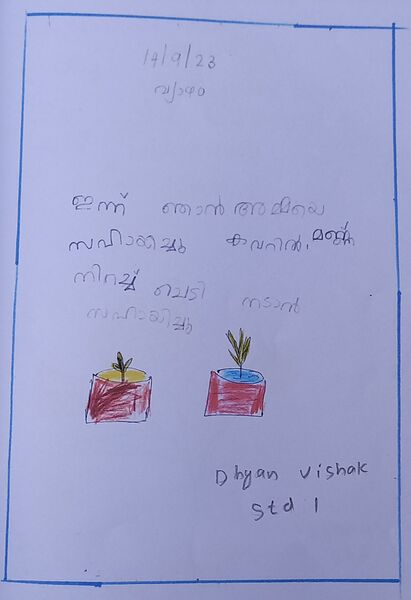 14/9/23
വ്യാഴം
ഇന്ന് ഞാൻ അമ്മയെ
സഹായിച്ചു കവറിൽ, മണ്ണ്
നിറച്ച് ചെടി നടാൻ
സഹായിച്ചു
Dhyan Vishak
Std 1